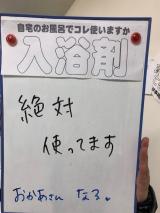 自宅のお風呂でコレ使いますか
入浴剤
絶対
使ってます
おかあさん なる。